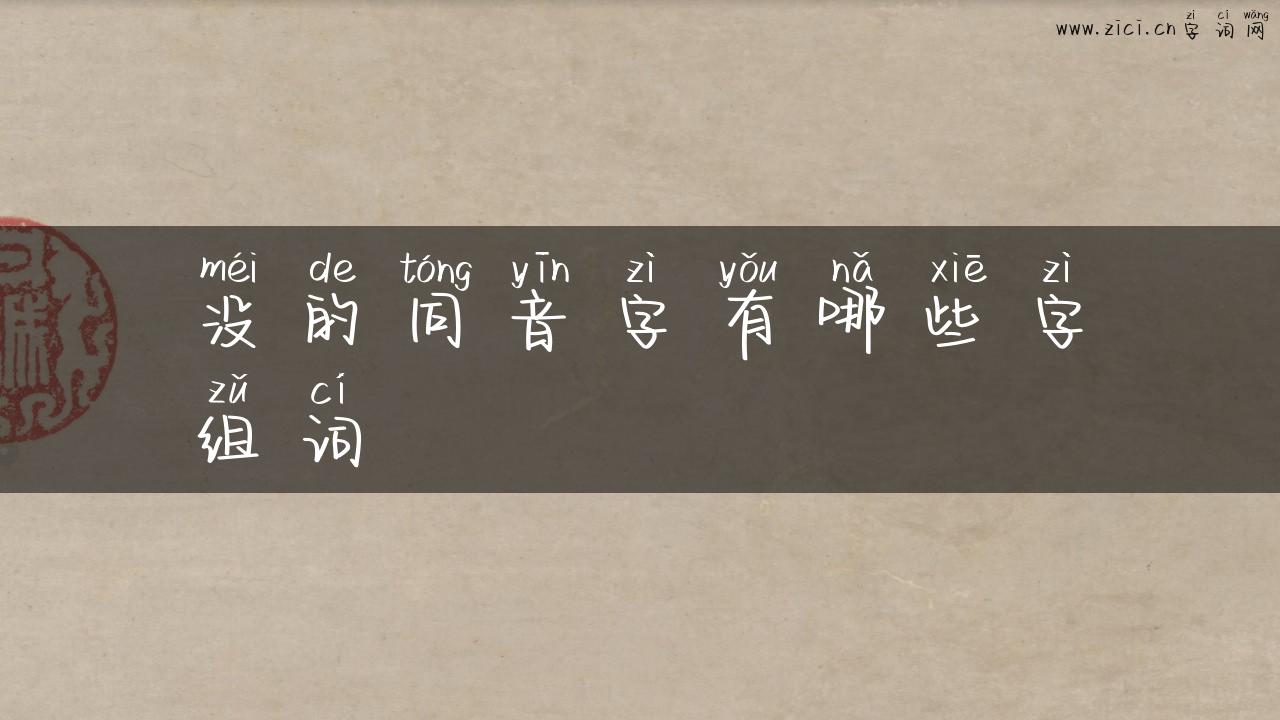 zì cí wǎng
www.zici.cn 字词网
méi de tóng yīn zì yǒu nǎ xiē zì
没的同音字有哪些字
zǔ cí
组词